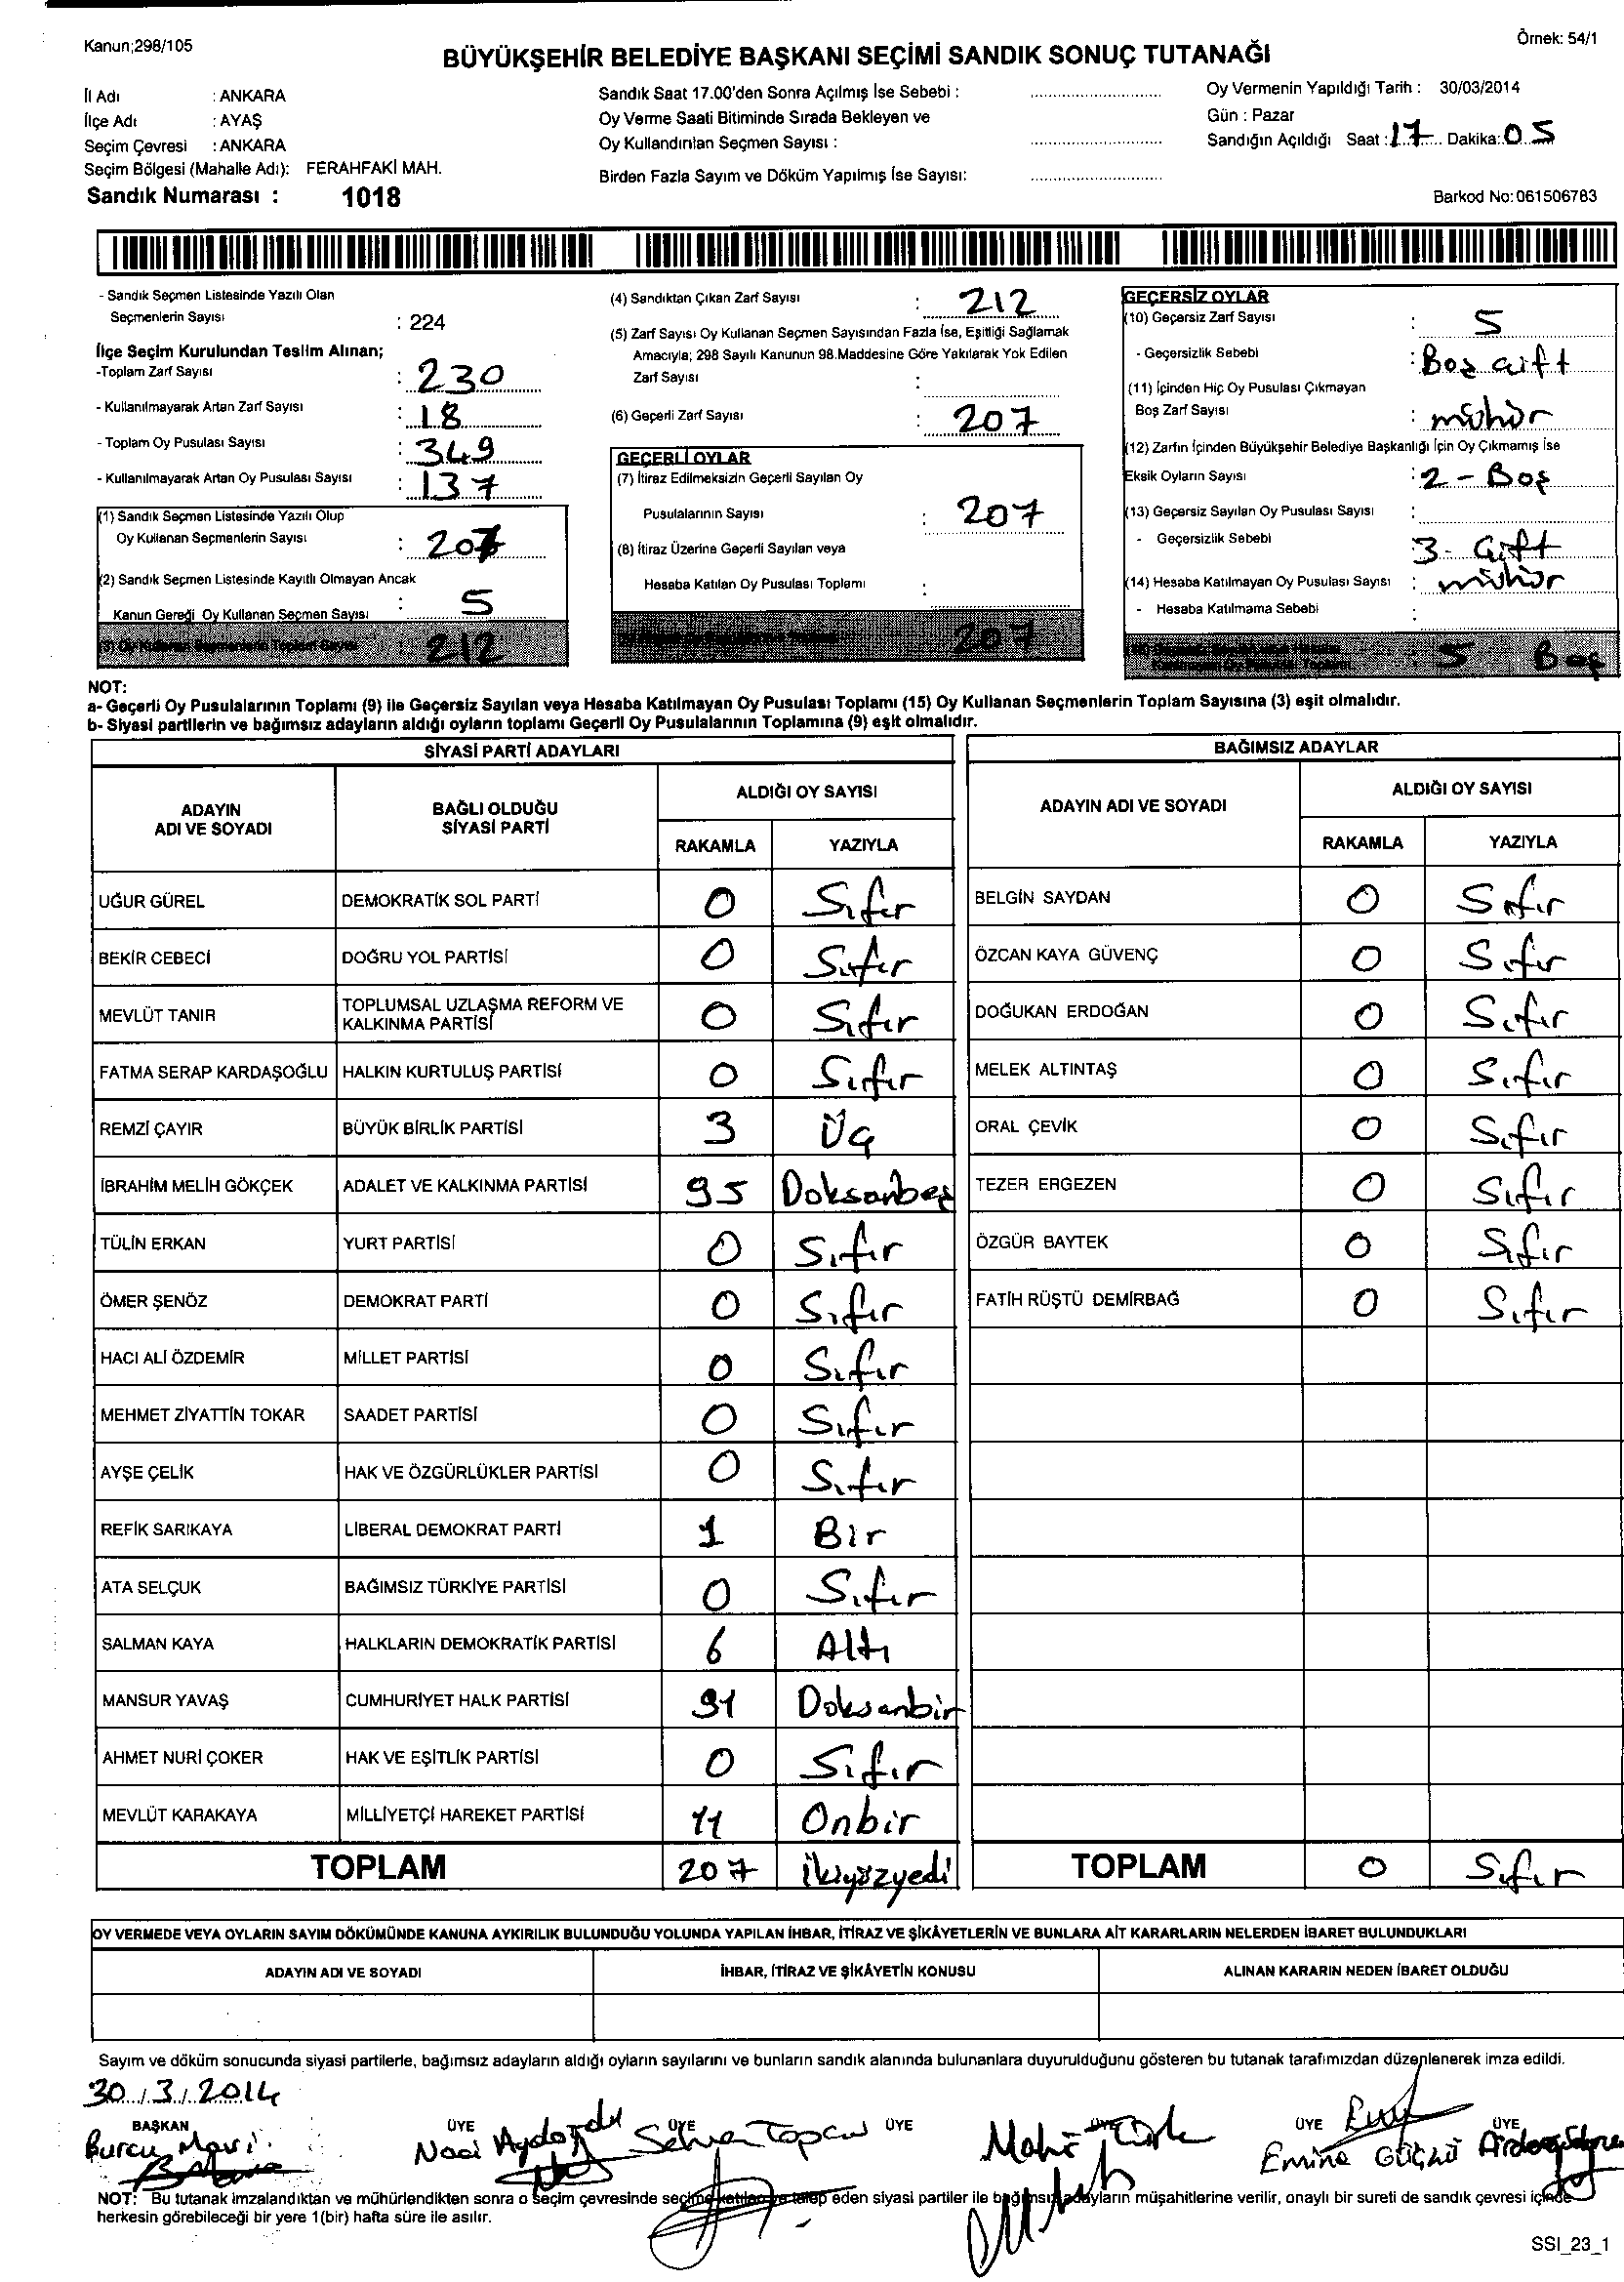 Kanun;298/105
Örnek: 54/1
BÜYÜKŞEHİR BELEDİYE BAŞKANI SEÇİMİ SANDIK SONUÇ TUTANAĞI
İl Adı : ANKARA
İlçe Adı : AYAŞ
Seçim Çevresi : ANKARA
Seçim Bölgesi (Mahalle Adı): FERAHFAKİ MAH.
Sandık Numarası : 1018
Sandık Saat 17.00'den Sonra Açılmış İse Sebebi :
Oy Verme Saati Bitiminde Sırada Bekleyen ve
Oy Kullandırılan Seçmen Sayısı :
Birden Fazla Sayım ve Döküm Yapılmış İse Sayısı:
Oy Vermenin Yapıldığı Tarih : 30/03/2014
Gün : Pazar
Sandığın Açıldığı Saat : 17 Dakika: 05
Barkod No: 061506783
- Sandık Seçmen Listesinde Yazılı Olan
Seçmenlerin Sayısı : 224
İlçe Seçim Kurulundan Teslim Alınan;
-Toplam Zarf Sayısı : 230
- Kullanılmayarak Artan Zarf Sayısı : 18
- Toplam Oy Pusulası Sayısı : 349
- Kullanılmayarak Artan Oy Pusulası Sayısı : 137
(1) Sandık Seçmen Listesinde Yazılı Olup
Oy Kullanan Seçmenlerin Sayısı : 207
(2) Sandık Seçmen Listesinde Kayıtlı Olmayan Ancak
Kanun Gereği Oy Kullanan Seçmen Sayısı : 5
(3) Oy Kullanan Seçmenlerin Toplam Sayısı : 212
(4) Sandıktan Çıkan Zarf Sayısı : 212
(5) Zarf Sayısı Oy Kullanan Seçmen Sayısından Fazla İse, Eşitliği Sağlamak
Amacıyla; 298 Sayılı Kanunun 98.Maddesine Göre Yakılarak Yok Edilen
Zarf Sayısı :
(6) Geçerli Zarf Sayısı : 207
GEÇERLİ OYLAR
(7) İtiraz Edilmeksizin Geçerli Sayılan Oy
Pusulalarının Sayısı : 207
(8) İtiraz Üzerine Geçerli Sayılan veya
Hesaba Katılan Oy Pusulası Toplamı :
207
GEÇERSİZ OYLAR
(10) Geçersiz Zarf Sayısı : 5
- Geçersizlik Sebebi : Boş Çift
(11) İçinden Hiç Oy Pusulası Çıkmayan
Boş Zarf Sayısı : mühür
(12) Zarfın İçinden Büyükşehir Belediye Başkanlığı İçin Oy Çıkmamış İse
Eksik Oyların Sayısı : 2 - Boş
(13) Geçersiz Sayılan Oy Pusulası Sayısı :
- Geçersizlik Sebebi : 3- Çift
(14) Hesaba Katılmayan Oy Pusulası Sayısı : mühür
- Hesaba Katılmama Sebebi :
5 Boş
NOT:
a- Geçerli Oy Pusulalarının Toplamı (9) ile Geçersiz Sayılan veya Hesaba Katılmayan Oy Pusulası Toplamı (15) Oy Kullanan Seçmenlerin Toplam Sayısına (3) eşit olmalıdır.
b- Siyasi partilerin ve bağımsız adayların aldığı oyların toplamı Geçerli Oy Pusulalarının Toplamına (9) eşit olmalıdır.
SİYASİ PARTİ ADAYLARI
ADAYIN ADI VE SOYADI BAĞLI OLDUĞU SİYASİ PARTİ ALDIĞI OY SAYISI
RAKAMLA YAZIYLA
UĞUR GÜREL DEMOKRATİK SOL PARTİ 0 Sıfır
BEKİR CEBECİ DOĞRU YOL PARTİSİ 0 Sıfır
MEVLÜT TANIR TOPLUMSAL UZLAŞMA REFORM VE KALKINMA PARTİSİ 0 Sıfır
FATMA SERAP KARDAŞOĞLU HALKIN KURTULUŞ PARTİSİ 0 Sıfır
REMZİ ÇAYIR BÜYÜK BİRLİK PARTİSİ 3 Üç
İBRAHİM MELİH GÖKÇEK ADALET VE KALKINMA PARTİSİ 95 Doksanbeş
TÜLİN ERKAN YURT PARTİSİ 0 Sıfır
ÖMER ŞENÖZ DEMOKRAT PARTİ 0 Sıfır
HACI ALİ ÖZDEMİR MİLLET PARTİSİ 0 Sıfır
MEHMET ZİYATTİN TOKAR SAADET PARTİSİ 0 Sıfır
AYŞE ÇELİK HAK VE ÖZGÜRLÜKLER PARTİSİ 0 Sıfır
REFİK SARIKAYA LİBERAL DEMOKRAT PARTİ 1 Bir
ATA SELÇUK BAĞIMSIZ TÜRKİYE PARTİSİ 0 Sıfır
SALMAN KAYA HALKLARIN DEMOKRATİK PARTİSİ 6 Altı
MANSUR YAVAŞ CUMHURİYET HALK PARTİSİ 91 Doksanbir
AHMET NURİ ÇOKER HAK VE EŞİTLİK PARTİSİ 0 Sıfır
MEVLÜT KARAKAYA MİLLİYETÇİ HAREKET PARTİSİ 11 Onbir
TOPLAM 207 İkiyüzyedi
BAĞIMSIZ ADAYLAR
ADAYIN ADI VE SOYADI ALDIĞI OY SAYISI
RAKAMLA YAZIYLA
BELGİN SAYDAN 0 Sıfır
ÖZCAN KAYA GÜVENÇ 0 Sıfır
DOĞUKAN ERDOĞAN 0 Sıfır
MELEK ALTINTAŞ 0 Sıfır
ORAL ÇEVİK 0 Sıfır
TEZER ERGEZEN 0 Sıfır
ÖZGÜR BAYTEK 0 Sıfır
FATİH RÜŞTÜ DEMİRBAĞ 0 Sıfır
TOPLAM 0 Sıfır
OY VERMEDE VEYA OYLARIN SAYIM DÖKÜMÜNDE KANUNA AYKIRILIK BULUNDUĞU YOLUNDA YAPILAN İHBAR, İTİRAZ VE ŞİKÂYETLERİN VE BUNLARA AİT KARARLARIN NELERDEN İBARET BULUNDUKLARI
ADAYIN ADI VE SOYADI İHBAR, İTİRAZ VE ŞİKÂYETİN KONUSU ALINAN KARARIN NEDEN İBARET OLDUĞU
Sayım ve döküm sonucunda siyasi partilerle, bağımsız adayların aldığı oyların sayılarını ve bunların sandık alanında bulunanlara duyurulduğunu gösteren bu tutanak tarafımızdan düzenlenerek imza edildi.
30/3/2014
BAŞKAN ÜYE ÜYE ÜYE ÜYE ÜYE ÜYE
Burcu Mavi Naci Selman Topcu Mahir Emine
NOT: Bu tutanak imzalandıktan ve mühürlendikten sonra o seçim çevresinde seçime katılan ve talep eden siyasi partiler ile bağımsız adayların müşahitlerine verilir, onaylı bir sureti de sandık çevresi içinde
herkesin görebileceği bir yere 1(bir) hafta süre ile asılır.
SSI_23_1